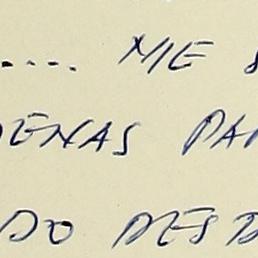 .... ME S
DENAS PAR
DO DESD